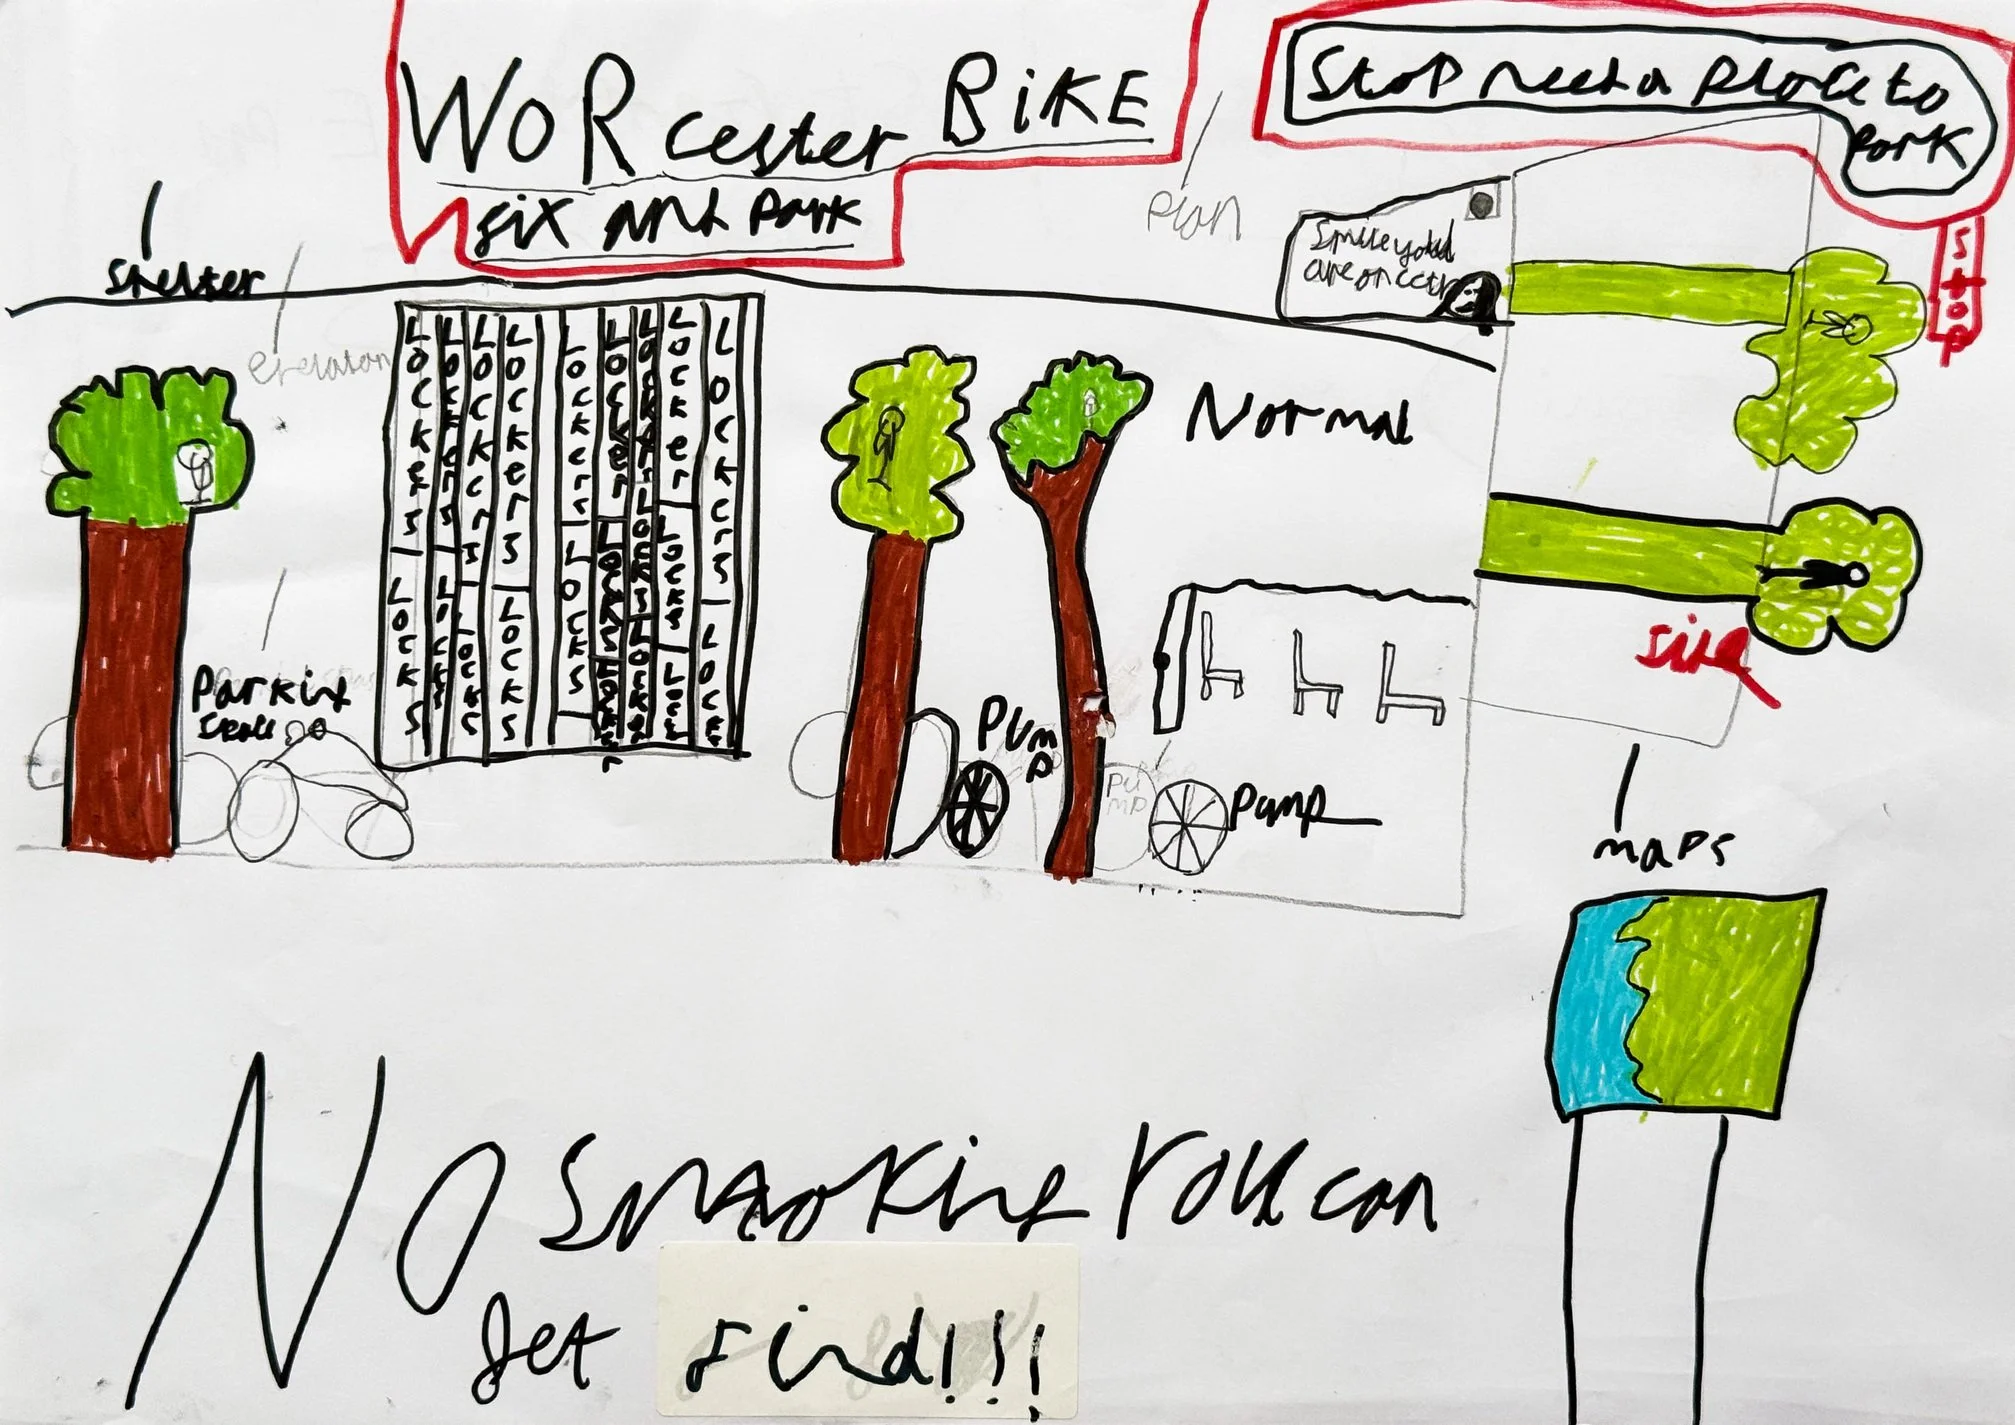 WORcester BIKE
fix and Park
Stop need a place to
park
Stop
plan
Shelter
elevation
Smile you
are on cctv
Normal
Lockers
Lockers
Lockers
Lockers
Lockers
Locker
Locker
Lockers
Locks
Locks
Locks
Locks
Locks
Locks
Locks
Locks
Lock
Parking
PUMP
PUMP
pump
size
maps
No smoking You can
get find!!!